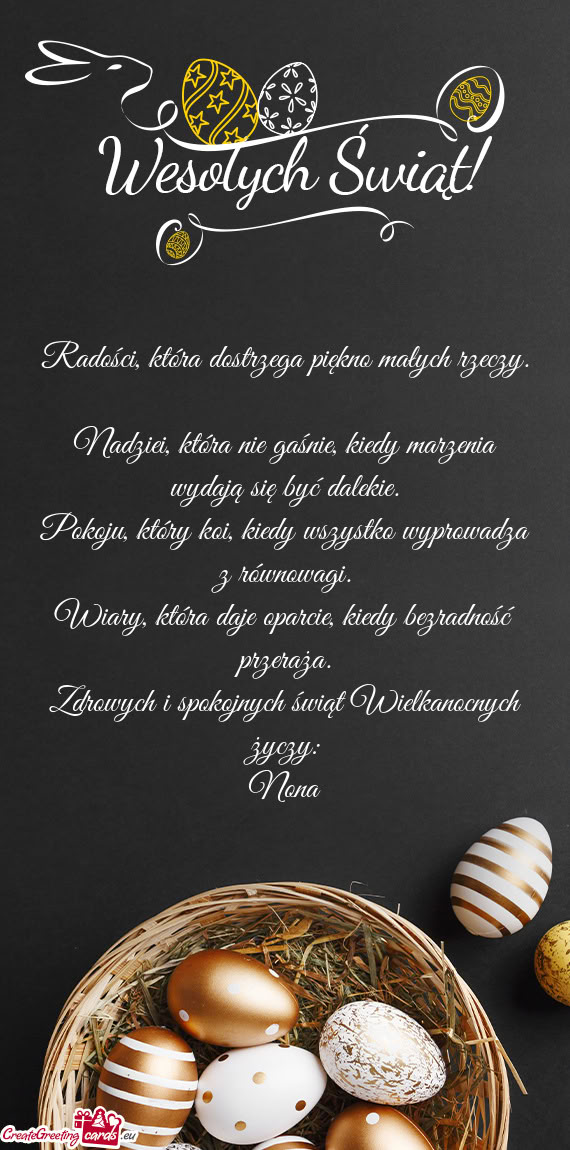 Wesołych Świąt!
Radości, która dostrzega piękno małych rzeczy.
Nadziei, która nie gaśnie, kiedy marzenia
wydają się być dalekie.
Pokoju, który koi, kiedy wszystko wyprowadza
z równowagi.
Wiary, która daje oparcie, kiedy bezradność
przeraża.
Zdrowych i spokojnych świąt Wielkanocnych
życzy:
Nona
CreateGreeting cards .eu